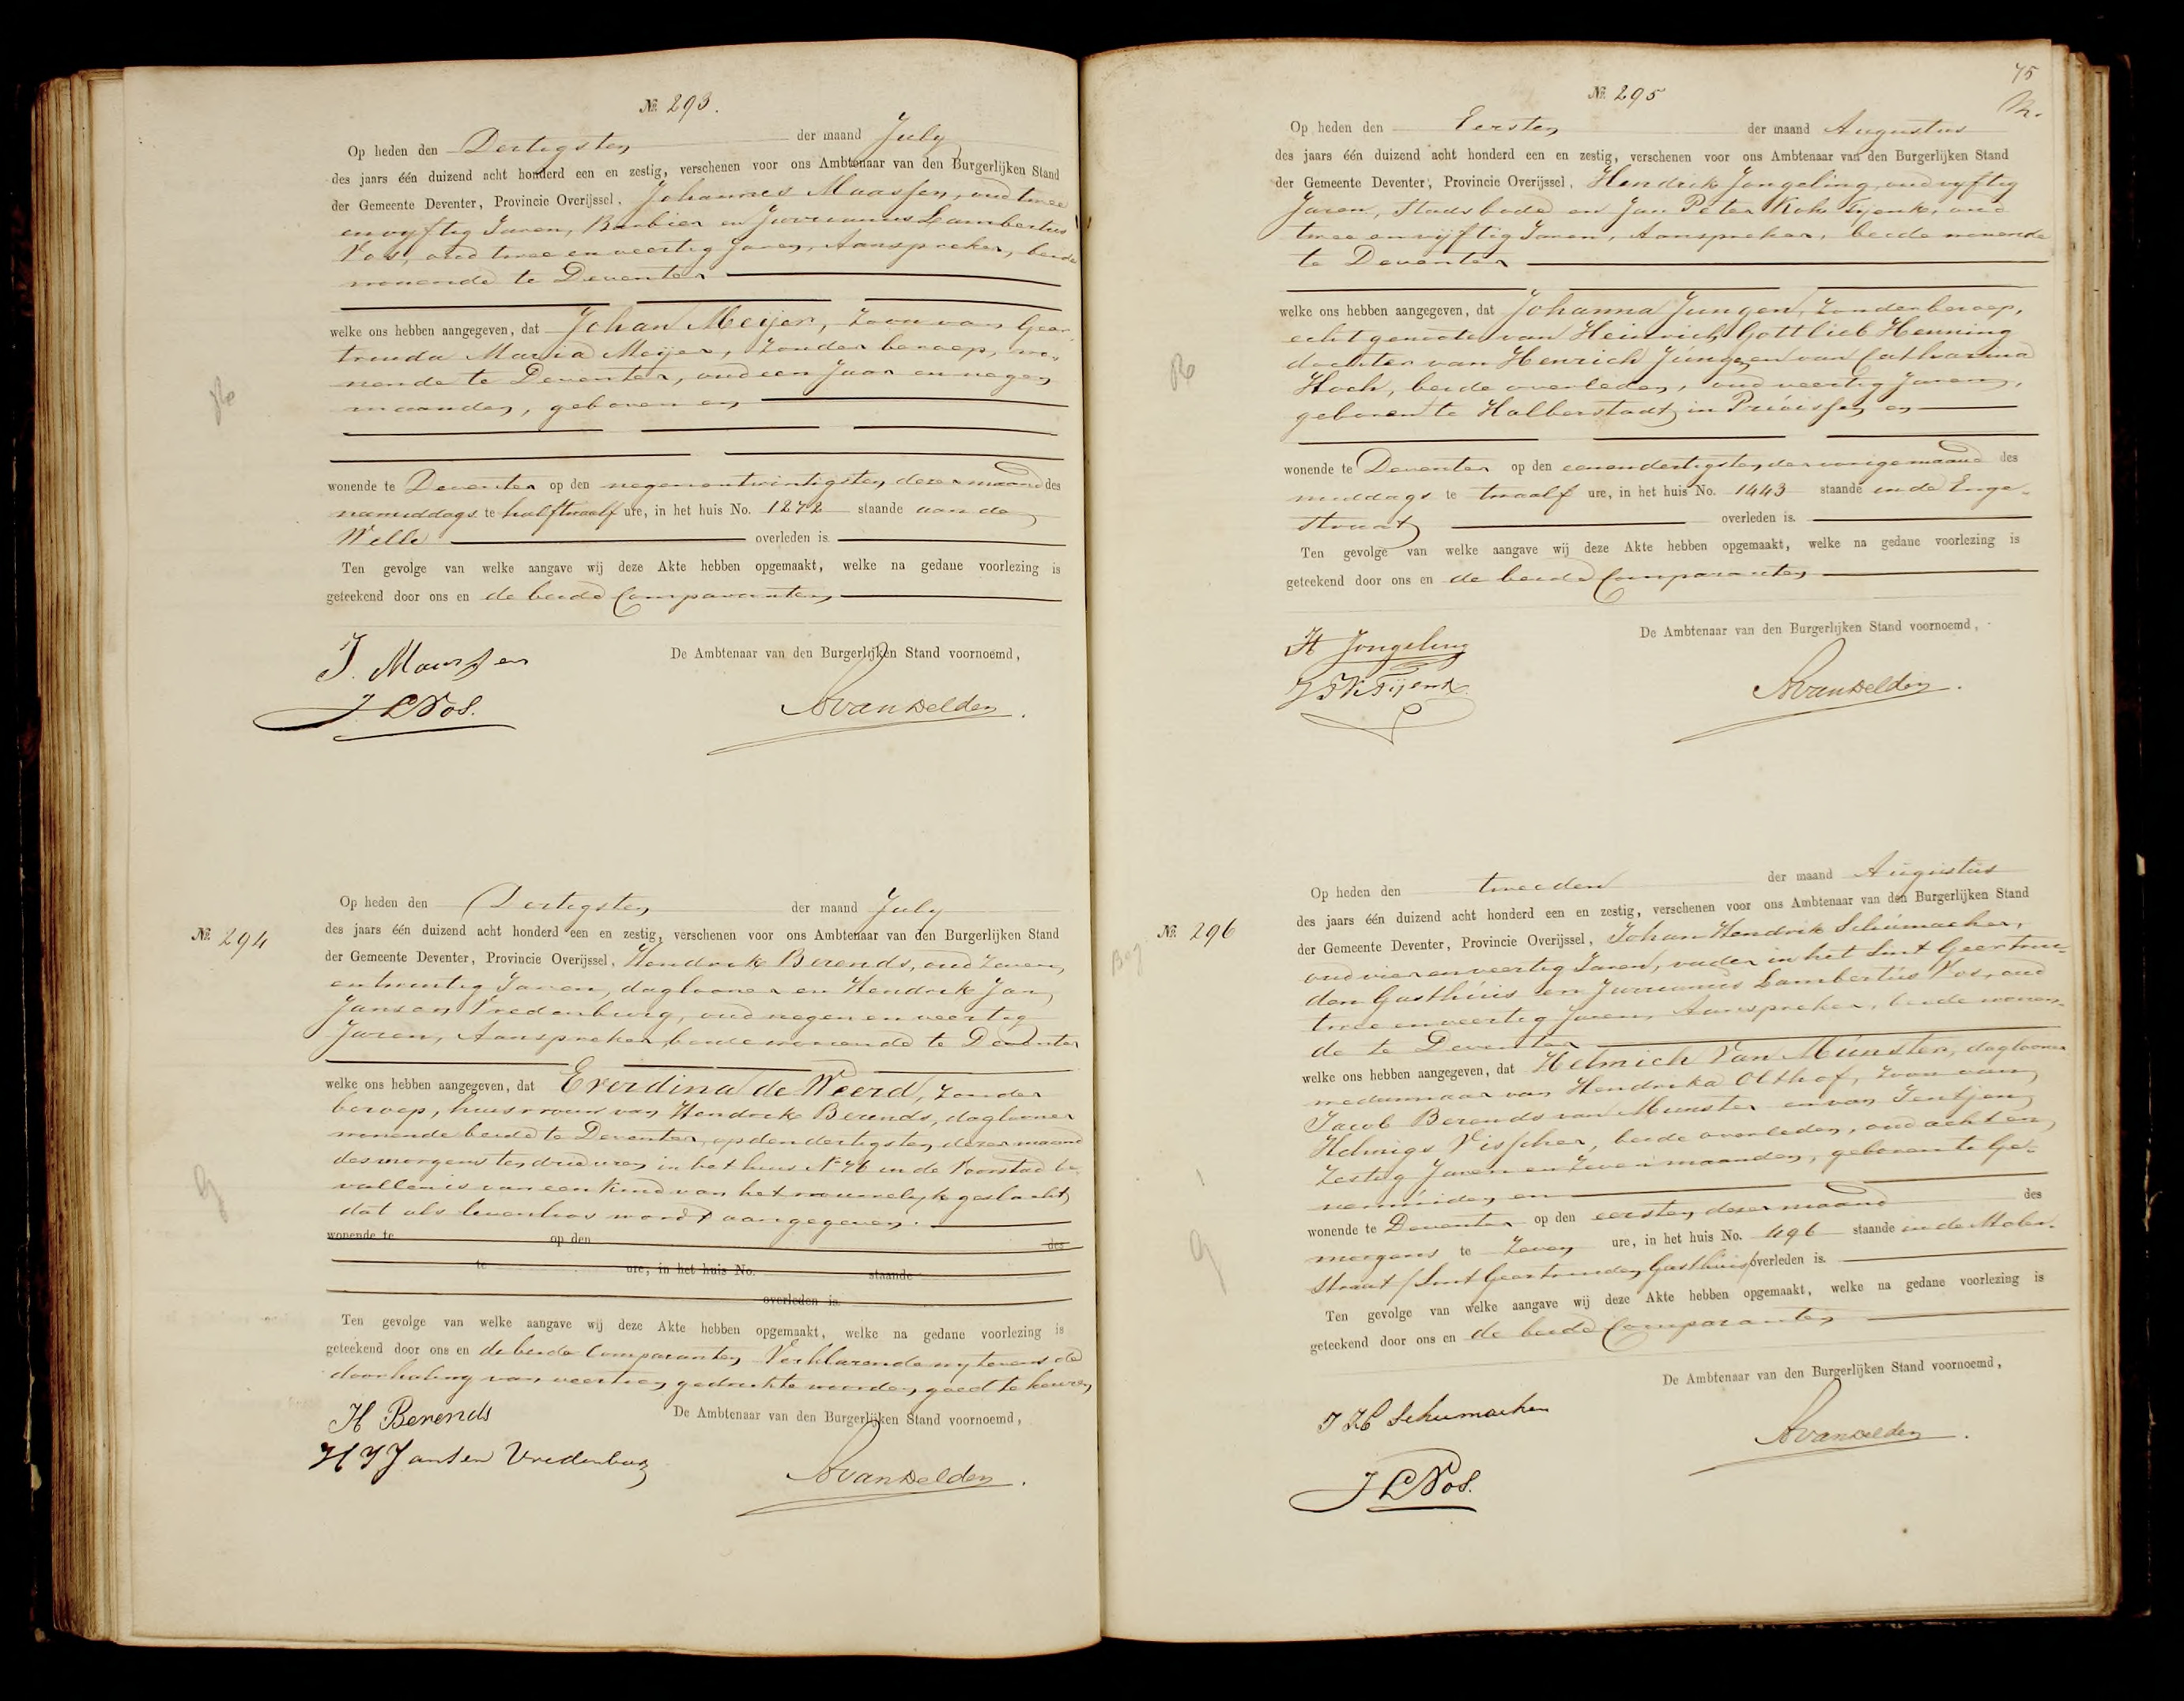 № 293.
Op heden den Dertigsten der maand July
des jaars één duizend acht honderd een en zestig, verschenen voor ons Ambtenaar van den Burgerlijken Stand
der Gemeente Deventer, Provincie Overijssel, Johannes Maassen, oud twee
en vyftig Jaren, Barbier en Jurrianus Lambertus
Vos, oud twee en veertig Jaren, Aanspreker, beide
wonende te Deventer
welke ons hebben aangegeven, dat Johan Meijer, zoon van Geer
truida Maria Meijer, zonder beroep, wo-
nende te Deventer, oud een Jaar en negen
maanden, geboren en
wonende te Deventer op den negenentwintigsten dezer maand des
namiddags te half twaalf ure, in het huis No. 1272 staande aan de
Welle overleden is.
Ten gevolge van welke aangave wij deze Akte hebben opgemaakt, welke na gedane voorlezing is
geteekend door ons en de beide Comparanten
J. Maassen
De Ambtenaar van den Burgerlijken Stand voornoemd,
J L Vos.
van Delden.
№ 294
Op heden den Dertigsten der maand July
des jaars één duizend acht honderd een en zestig, verschenen voor ons Ambtenaar van den Burgerlijken Stand
der Gemeente Deventer, Provincie Overijssel, Hendrik Berends, oud zeven
entwintig Jaren, daglooner en Hendrik Jan
Jansen Vredenburg, oud negen en veertig
Jaren, Aanspreker, beide wonende te Deventer
welke ons hebben aangegeven, dat Everdina de Weerd, zonder
beroep, huisvrouw van Hendrik Berends, daglooner
wonende beide te Deventer, op den dertigsten dezer maand
des morgens ten drie uren in het huis No 76 in de Voorstad be-
vallen is van een kind van het vrouwelyk geslacht,
dat als levenloos wordt aangegeven.
wonende te op den des
te ure, in het huis No. staande
overleden is.
Ten gevolge van welke aangave wij deze Akte hebben opgemaakt, welke na gedane voorlezing is
geteekend door ons en de beide Comparanten Verklarende wy tevens de
doorhaling van veertien gedrukte woorden goed te keuren
H Berends
De Ambtenaar van den Burgerlijken Stand voornoemd,
H J Jansen Vredenburg
van Delden.
75
№ 295
Op heden den Eersten der maand Augustus
des jaars één duizend acht honderd een en zestig, verschenen voor ons Ambtenaar van den Burgerlijken Stand
der Gemeente Deventer, Provincie Overijssel, Hendrik Jongeling, oud vyftig
Jaren, Stadsbode en Jan Peter Kok Tijenk, oud
twee en vijftig Jaren, Aanspreker, beide wonende
te Deventer
welke ons hebben aangegeven, dat Johanna Jungen, zonder beroep,
echtgenoote van Heinrich Gottlieb Henning
dochter van Henrich Jungen en van Catharina
Hoch, beide overleden, oud veertig Jaren,
geboren te Halberstadt in Pruissen en
wonende te Deventer op den eenendertigsten der vorige maand des
middags te twaalf ure, in het huis No. 1443 staande in de Enge-
straat overleden is.
Ten gevolge van welke aangave wij deze Akte hebben opgemaakt, welke na gedane voorlezing is
geteekend door ons en de beide Comparanten
De Ambtenaar van den Burgerlijken Stand voornoemd,
H Jongeling
J P K Tijenk
van Delden.
№ 296
Op heden den tweeden der maand Augustus
des jaars één duizend acht honderd een en zestig, verschenen voor ons Ambtenaar van den Burgerlijken Stand
der Gemeente Deventer, Provincie Overijssel, Johan Hendrik Schumacher,
oud vier en veertig Jaren, vader in het Sint Geertrui-
den Gasthuis en Jurrianus Lambertus Vos, oud
twee en veertig Jaren, Aanspreker, beide wonen-
de te Deventer
welke ons hebben aangegeven, dat Helmich Van Munster, daglooner
weduwnaar van Hendrika Olthof, zoon van
Jacob Berends van Munster en van Jentjen
Helmigs Visscher, beide overleden, oud acht en
zestig Jaren en zeven maanden, geboren te Ge-
nemuiden en
wonende te Deventer op den eersten dezer maand des
morgens te zeven ure, in het huis No. 496 staande in de Molen-
straat (Sint Geertruiden Gasthuis) overleden is.
Ten gevolge van welke aangave wij deze Akte hebben opgemaakt, welke na gedane voorlezing is
geteekend door ons en de beide Comparanten
De Ambtenaar van den Burgerlijken Stand voornoemd,
J H Schumacher
van Delden.
J L Vos.